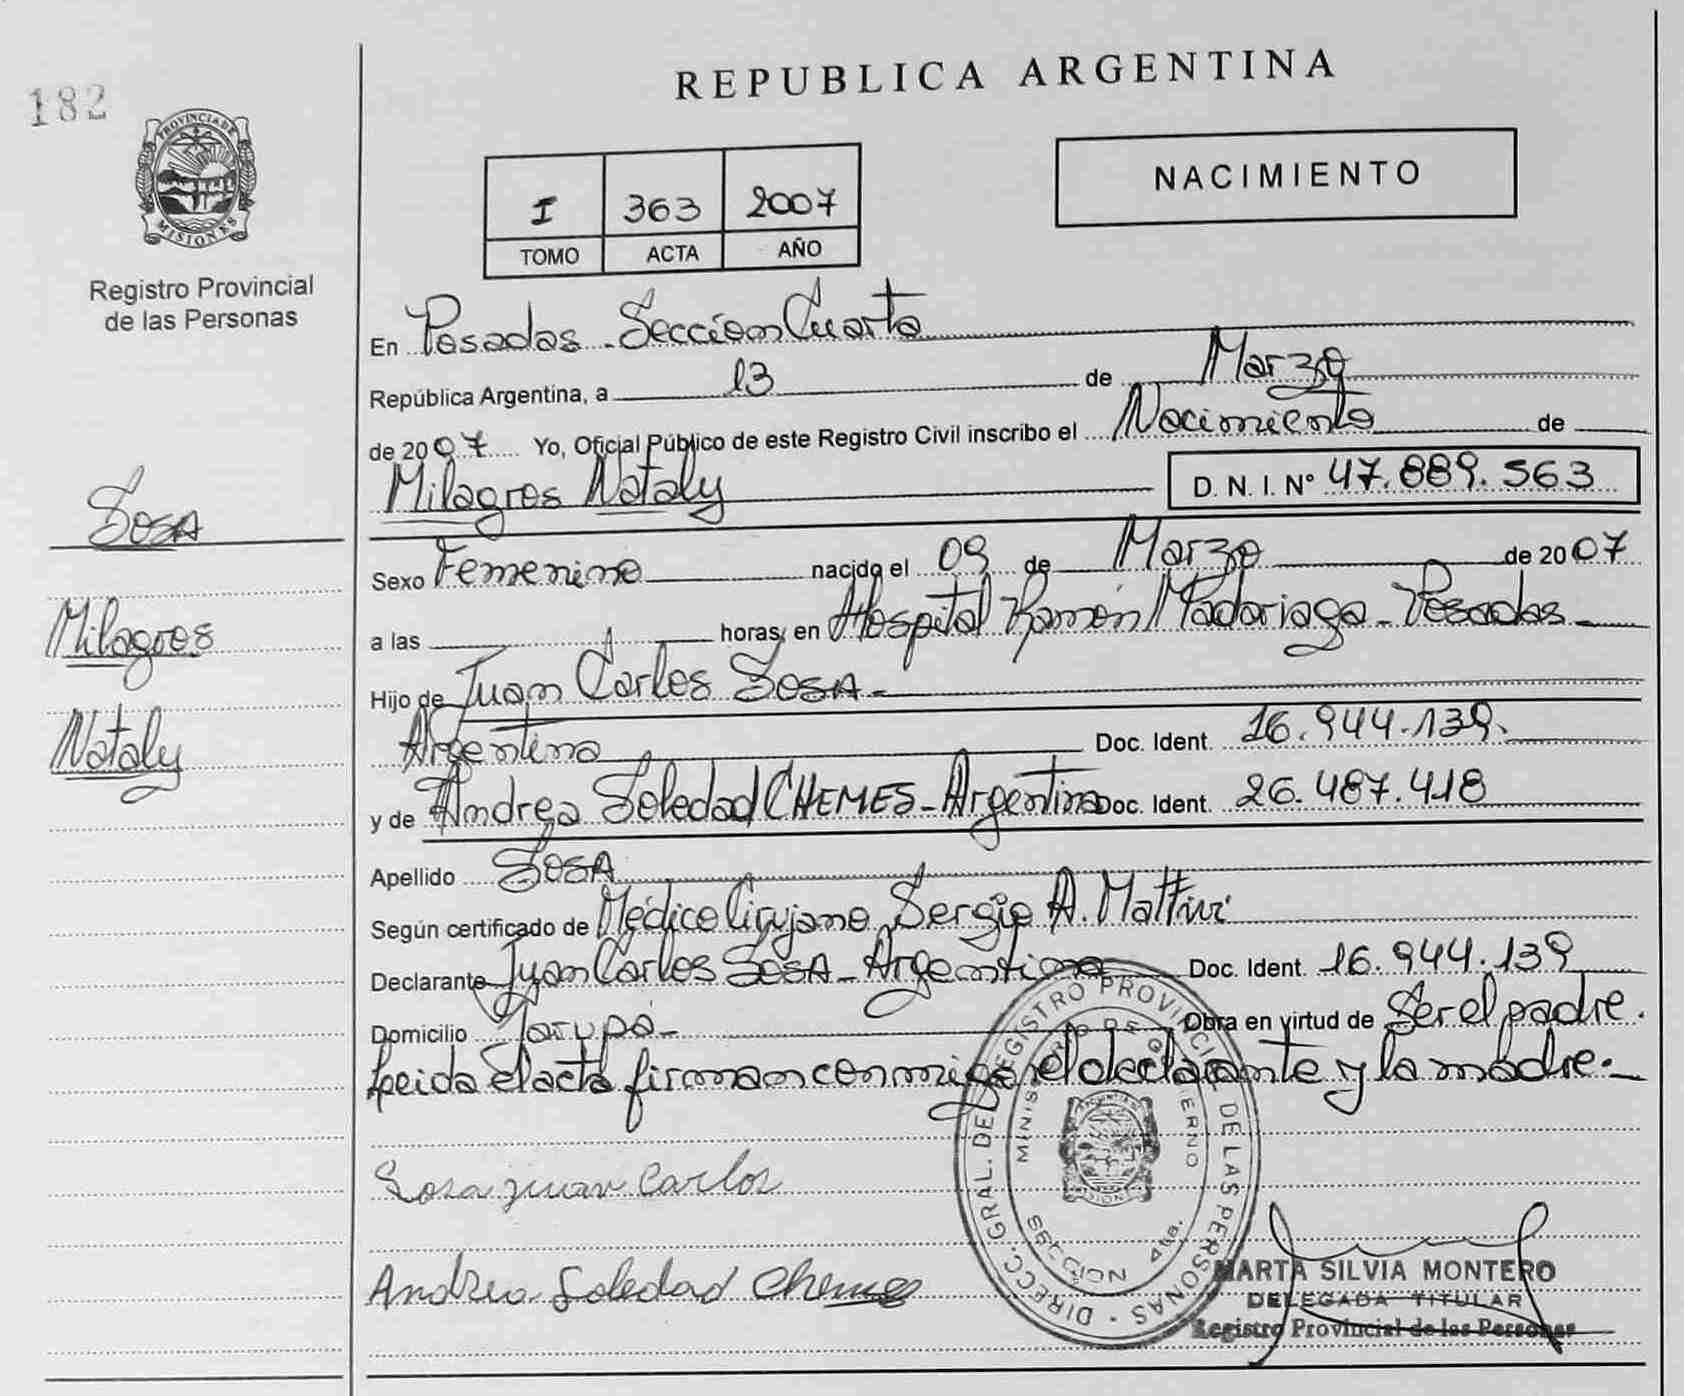 182
PROVINCIA DE
MISIONES
Registro Provincial
de las Personas
SOSA
Milagros
Nataly
REPUBLICA ARGENTINA
I 363 2007
TOMO ACTA AÑO
NACIMIENTO
En Posadas - Sección Cuarta
República Argentina, a 13 de Marzo
de 2007 Yo, Oficial Público de este Registro Civil inscribo el Nacimiento de
Milagros Nataly D. N. I. N° 47.889.563
Sexo Femenino nacido el 09 de Marzo de 2007
a las horas, en Hospital Ramón Madariaga - Posadas -
Hijo de Juan Carlos SOSA -
Argentino Doc. Ident. 16.944.139.
y de Andrea Soledad CHEMES - Argentina Doc. Ident. 26.487.418
Apellido SOSA
Según certificado de Médico Cirujano Sergio A.
Declarante Juan Carlos SOSA - Argentino Doc. Ident. 16.944.139
Domicilio Garupá - Obra en virtud de Ser el padre.
Leida el acta firman conmigo el declarante y la madre. -
Sosa Juan Carlos
Andrea Soledad Chemes
DIRECC. GRAL. DEL REGISTRO PROVINCIAL DE LAS PERSONAS
MINISTERIO DE GOBIERNO
SECCION 4ta.
MARTA SILVIA MONTERO
DELEGADA TITULAR
Registro Provincial de las Personas